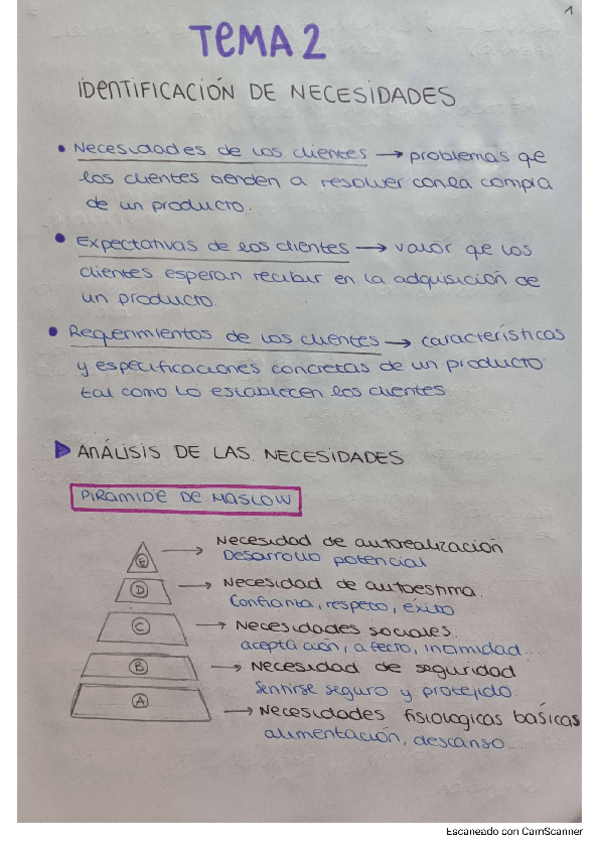 1
TEMA 2
IDENTIFICACIÓN DE NECESIDADES
• Necesidades de los clientes → problemas qe
los clientes tienden a resolver con la compra
de un producto.
• Expectativas de los clientes → valor qe los
clientes esperan recibir en la adquisición de
un producto.
• Reqerimientos de los clientes → características
y especificaciones concretas de un producto
tal como lo establecen los clientes
ANÁLISIS DE LAS NECESIDADES
PIRÁMIDE DE MASLOW
E → Necesidad de autorealización
Desarrollo potencial
D → Necesidad de autoestima.
Confianta, respeto, éxito
C → Necesidades sociales.
aceptación, afecto, intimidad...
B → Necesidad de seguridad
Sentirse seguro y protejido.
A → Necesidades fisiologicas basicas
alimentación, descanso...
Escaneado con CamScanner